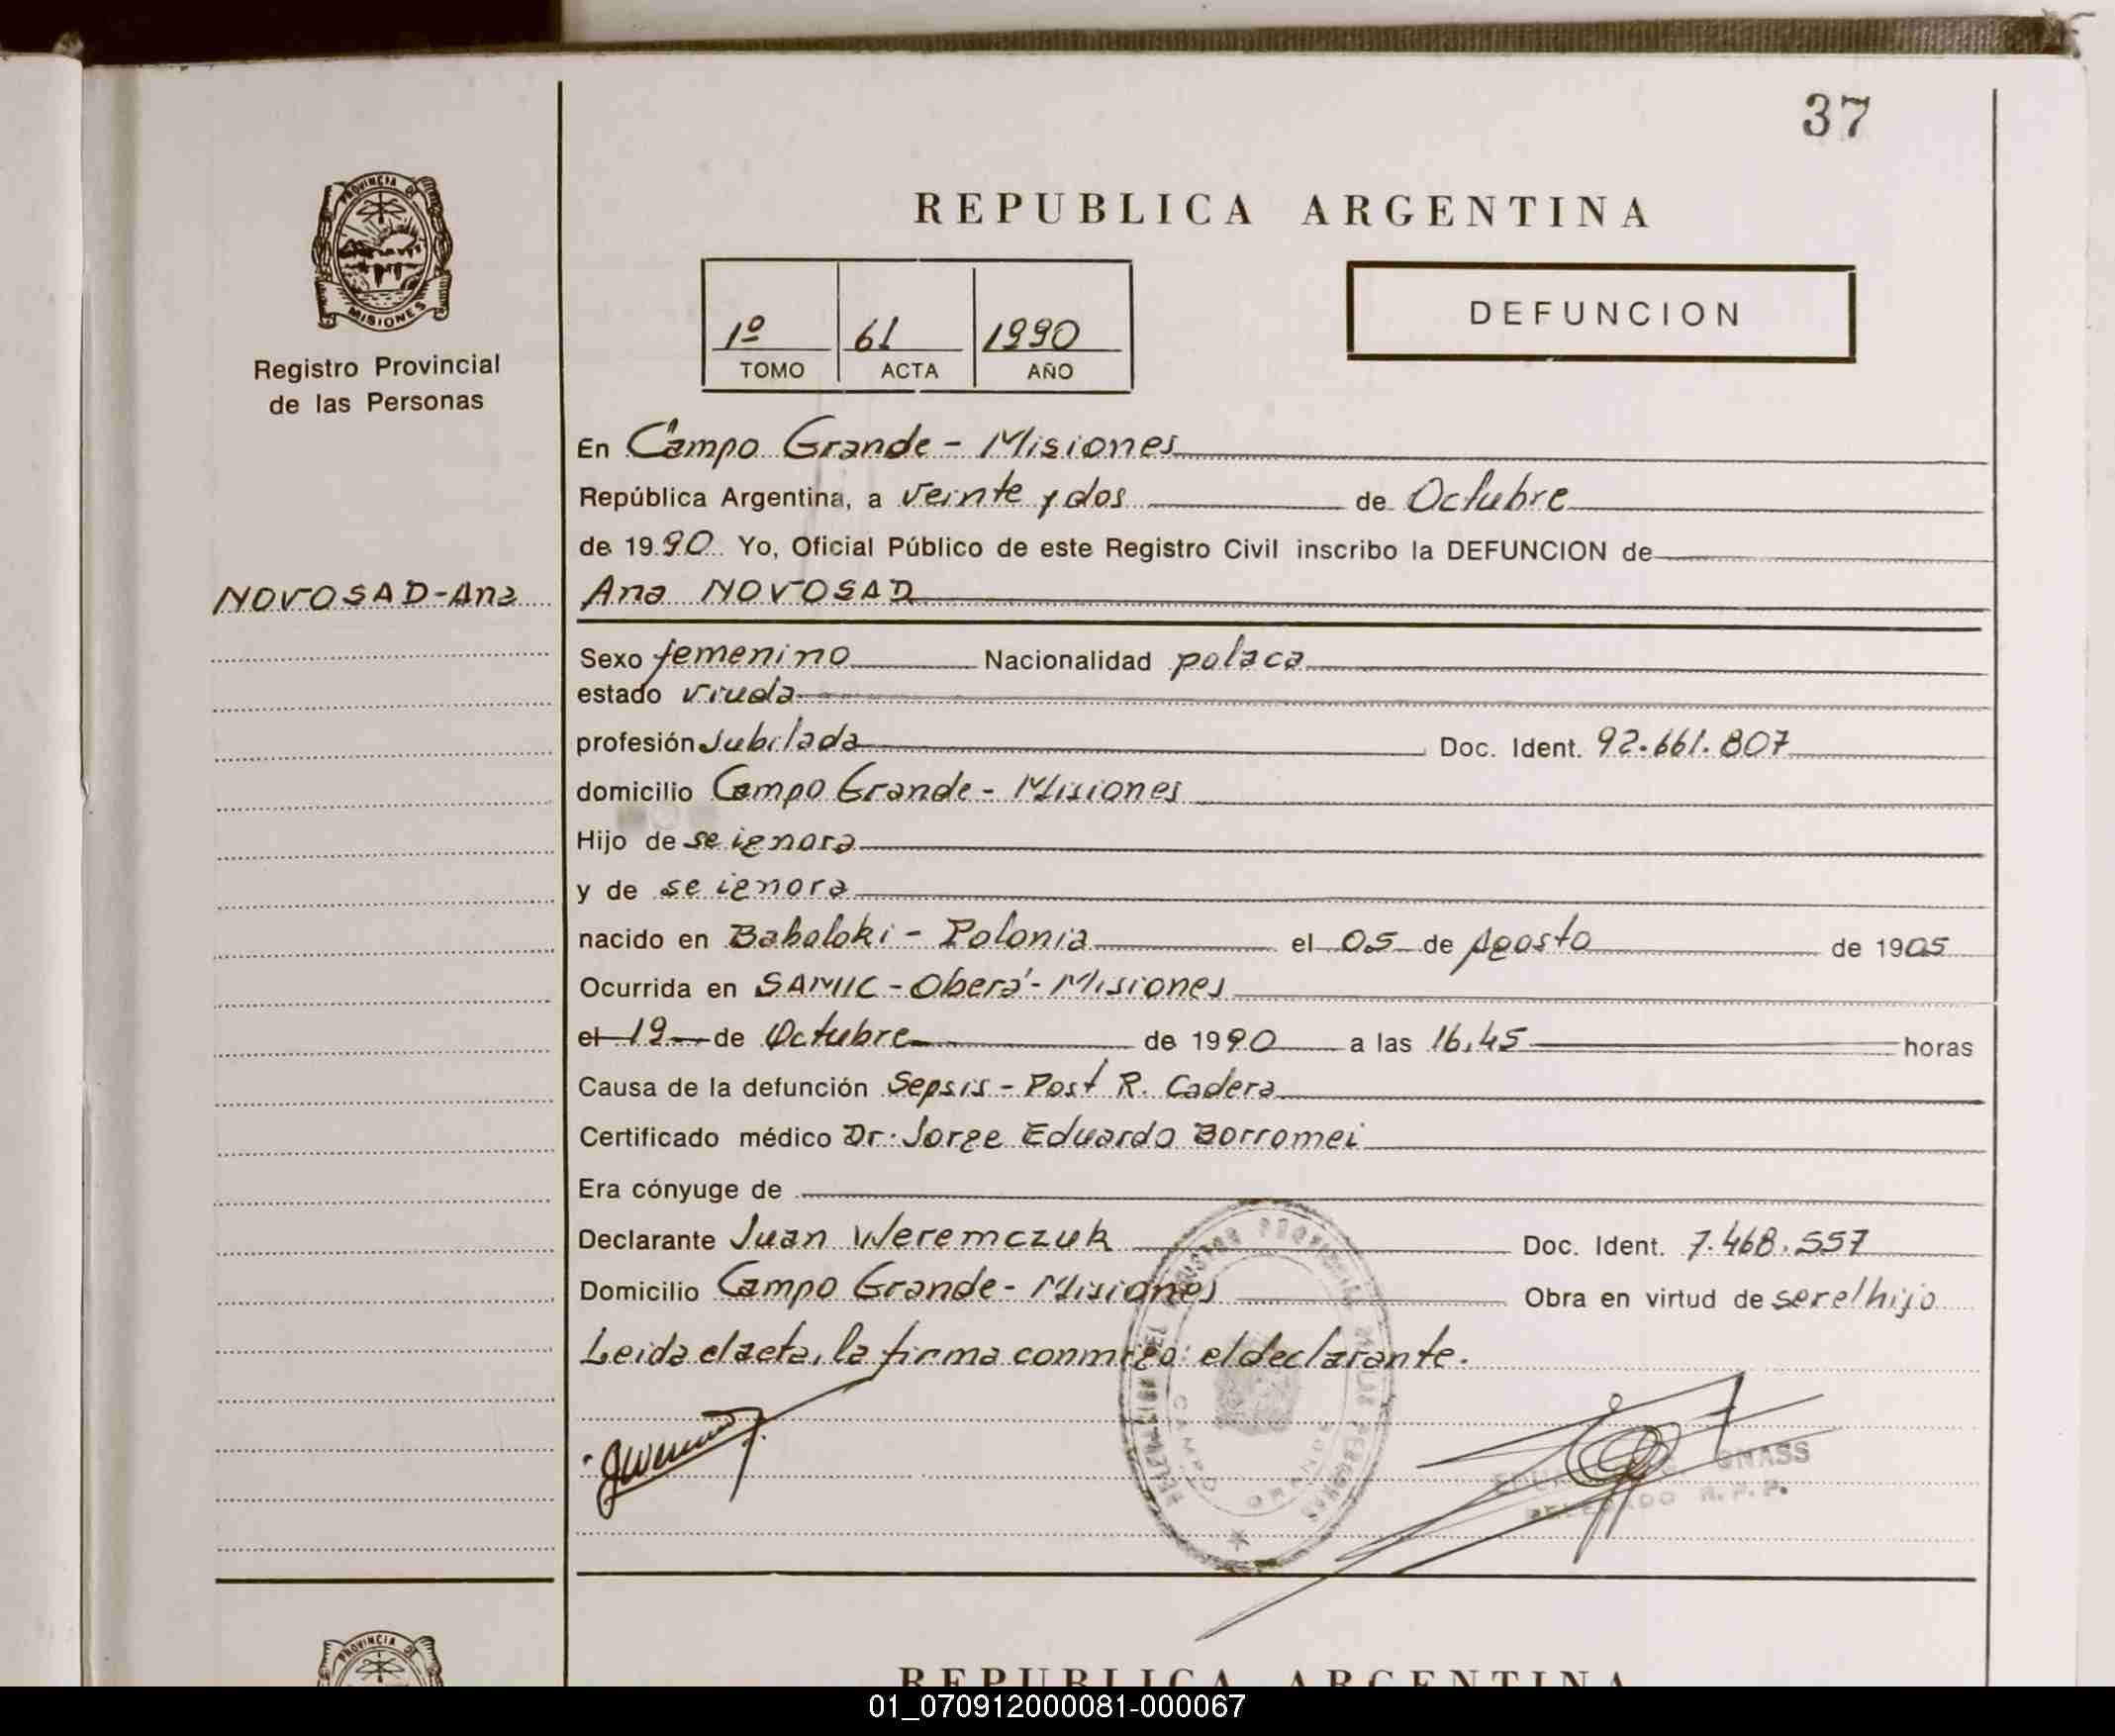 37
PROVINCIA DE
MISIONES
Registro Provincial
de las Personas
REPUBLICA ARGENTINA
1º 61 1990
TOMO ACTA AÑO
DEFUNCION
En Campo Grande - Misiones
República Argentina, a veinte y dos de Octubre
de 1990 Yo, Oficial Público de este Registro Civil inscribo la DEFUNCION de
NOVOSAD-Ana
Ana NOVOSAD
Sexo femenino Nacionalidad polaca
estado viuda
profesión Jubilada Doc. Ident. 92.661.807
domicilio Campo Grande - Misiones
Hijo de se ignora
y de se ignora
nacido en Baboloki - Polonia el 05 de Agosto de 1905
Ocurrida en SAMIC - Oberá - Misiones
el 19 de Octubre de 1990 a las 16,45 horas
Causa de la defunción Sepsis - Post R. Cadera
Certificado médico Dr. Jorge Eduardo Borromei
Era cónyuge de
Declarante Juan Weremczuk Doc. Ident. 7.468.557
Domicilio Campo Grande - Misiones Obra en virtud de ser el hijo
Leida el acta, la firma conmigo: el declarante.
CAMPO GRANDE
GNASS
DELEGADO R.P.P.
PROVINCIA DE
REPUBLICA ARGENTINA
01_070912000081-000067